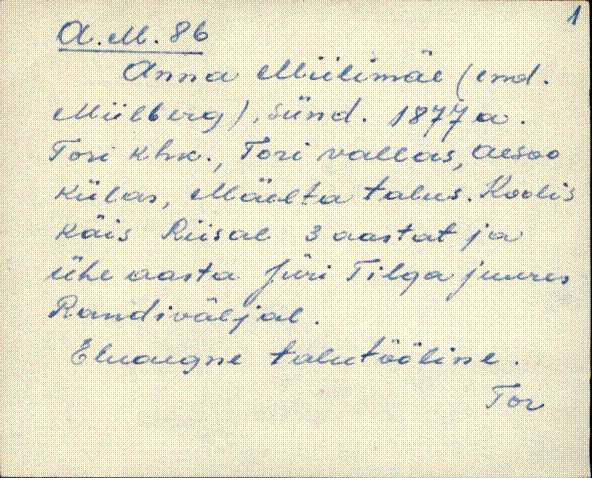 1
A.M. 86
Anna Miilimäe (end.
Miilberg), sünd. 1877 a.
Tori khk., Tori vallas, Aesoo
külas, Mäelta talus. Koolis
käis Riisal 3 aastat ja
ühe aasta Jüri Tilga juures
Randiväljal.
Eluaegne talutööline.
Tor